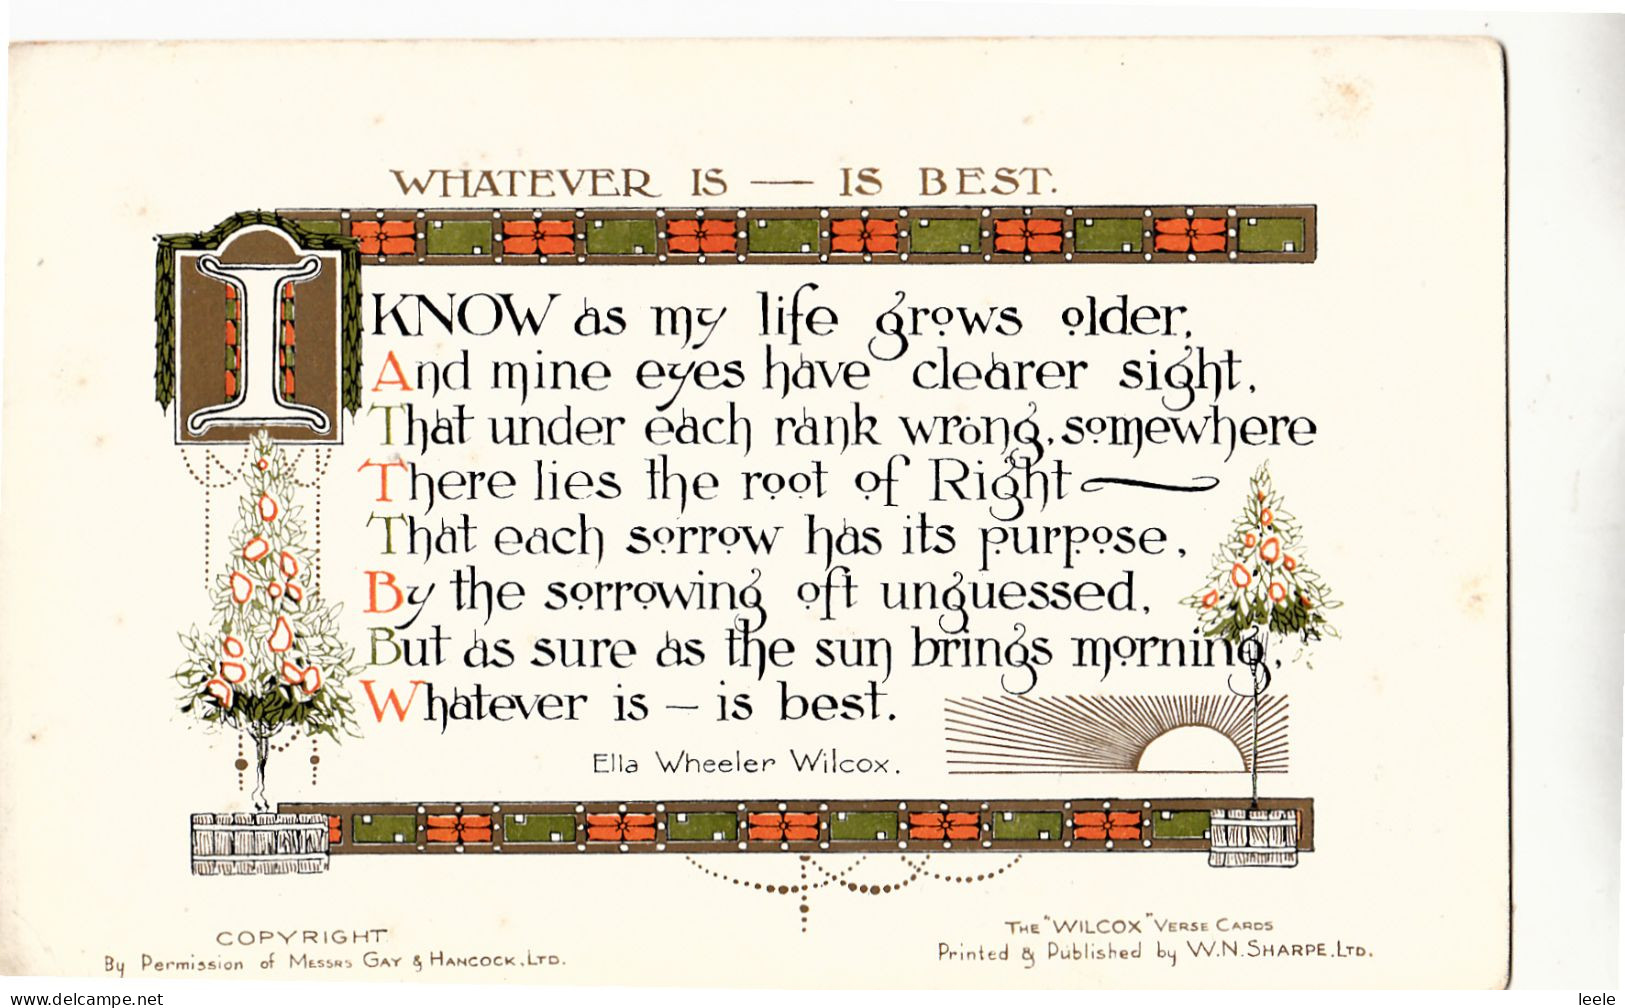 WHATEVER IS — IS BEST.
I KNOW as my life grows older,
And mine eyes have clearer sight,
That under each rank wrong, somewhere
There lies the root of Right —
That each sorrow has its purpose,
By the sorrowing oft unguessed,
But as sure as the sun brings morning,
Whatever is – is best.
Ella Wheeler Wilcox.
COPYRIGHT
By Permission of MESSRS GAY & HANCOCK, LTD.
THE "WILCOX" VERSE CARDS
Printed & Published by W.N. SHARPE, LTD.
www.delcampe.net
leele